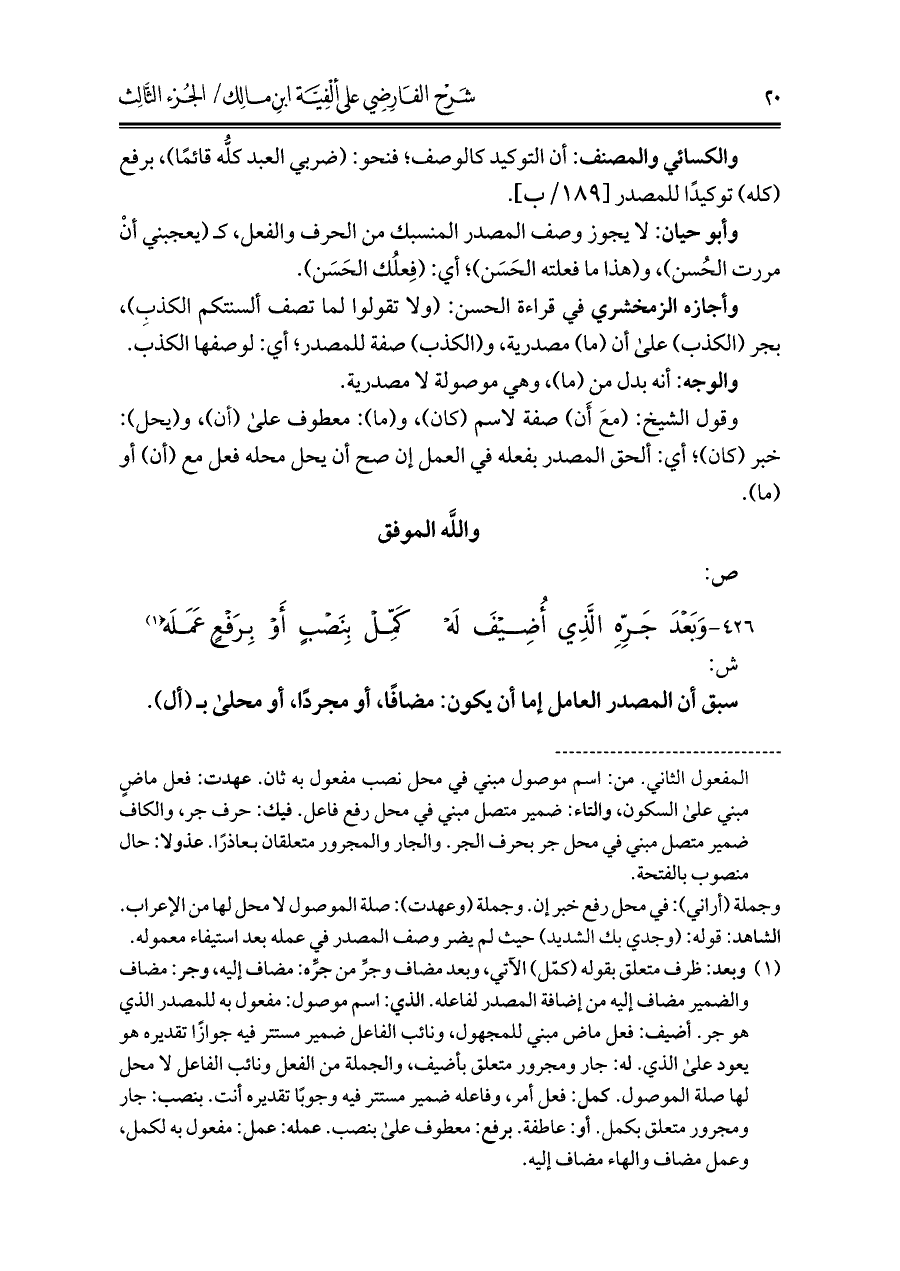 ٢٠ شَرْح الفَارِضِي عَلى أَلْفِيَّة ابنِ مَالِك/ الجُزء الثَّالِث
والكسائي والمصنف: أن التوكيد كالوصف؛ فنحو: (ضربي العبد كلُّه قائمًا)، برفع
(كله) توكيدًا للمصدر [١٨٩/ ب].
وأبو حيان: لا يجوز وصف المصدر المنسبك من الحرف والفعل، كـ (يعجبني أنْ
مررت الحُسن)، و(هذا ما فعلته الحَسَن)؛ أي: (فِعلُك الحَسَن).
وأجازه الزمخشري في قراءة الحسن: (ولا تقولوا لما تصف ألسنتكم الكذبِ)،
بجر (الكذب) علىٰ أن (ما) مصدرية، و(الكذب) صفة للمصدر؛ أي: لوصفها الكذب.
والوجه: أنه بدل من (ما)، وهي موصولة لا مصدرية.
وقول الشيخ: (معَ أَن) صفة لاسم (كان)، و(ما): معطوف علىٰ (أن)، و(يحل):
خبر (كان)؛ أي: ألحق المصدر بفعله في العمل إن صح أن يحل محله فعل مع (أن) أو
(ما).
واللَّه الموفق
ص:
٤٢٦-وَبَعْدَ جَرِّهِ الَّذِي أُضِيْفَ لَهُ كَمِّلْ بِنَصْبٍ أَوْ بِرَفْعٍ عَمَلَهْ(١)
ش:
سبق أن المصدر العامل إما أن يكون: مضافًا، أو مجردًا، أو محلىٰ بـ (أل).
المفعول الثاني. من: اسم موصول مبني في محل نصب مفعول به ثان. عهدت: فعل ماضٍ
مبني علىٰ السكون، والتاء: ضمير متصل مبني في محل رفع فاعل. فيك: حرف جر، والكاف
ضمير متصل مبني في محل جر بحرف الجر. والجار والمجرور متعلقان بـعاذرًا. عذولا: حال
منصوب بالفتحة.
وجملة (أراني): في محل رفع خبر إن. وجملة (وعهدت): صلة الموصول لا محل لها من الإعراب.
الشاهد: قوله: (وجدي بك الشديد) حيث لم يضر وصف المصدر في عمله بعد استيفاء معموله.
(١) وبعد: ظرف متعلق بقوله (كمّل) الآتي، وبعد مضاف وجرِّ من جرِّه: مضاف إليه، وجر: مضاف
والضمير مضاف إليه من إضافة المصدر لفاعله. الذي: اسم موصول: مفعول به للمصدر الذي
هو جر. أضيف: فعل ماض مبني للمجهول، ونائب الفاعل ضمير مستتر فيه جوازًا تقديره هو
يعود علىٰ الذي. له: جار ومجرور متعلق بأضيف، والجملة من الفعل ونائب الفاعل لا محل
لها صلة الموصول. كمل: فعل أمر، وفاعله ضمير مستتر فيه وجوبًا تقديره أنت. بنصب: جار
ومجرور متعلق بكمل. أو: عاطفة. برفع: معطوف علىٰ بنصب. عمله: عمل: مفعول به لكمل،
وعمل مضاف والهاء مضاف إليه.